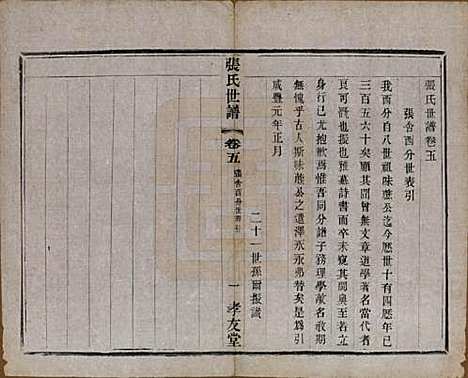 張氏世譜卷五
張舍酉分世表引
我酉分自八世祖味蔗公迄今歷世十有四歷年已
三百五六十矣顧其間曾無文章道學著名當代者
良可慨焉然予嘗雅墓詩書而卒未窺其閫奧至若
身行已尤抱歉焉惟吾同分諸子務理學敝名教期
無愧乎古人斯味蔗公之遺澤永永弗替矣是為引
咸豐元年正月
二十一世孫爾振識
張氏世譜
卷五
張舍酉分世表引
一
孝友堂